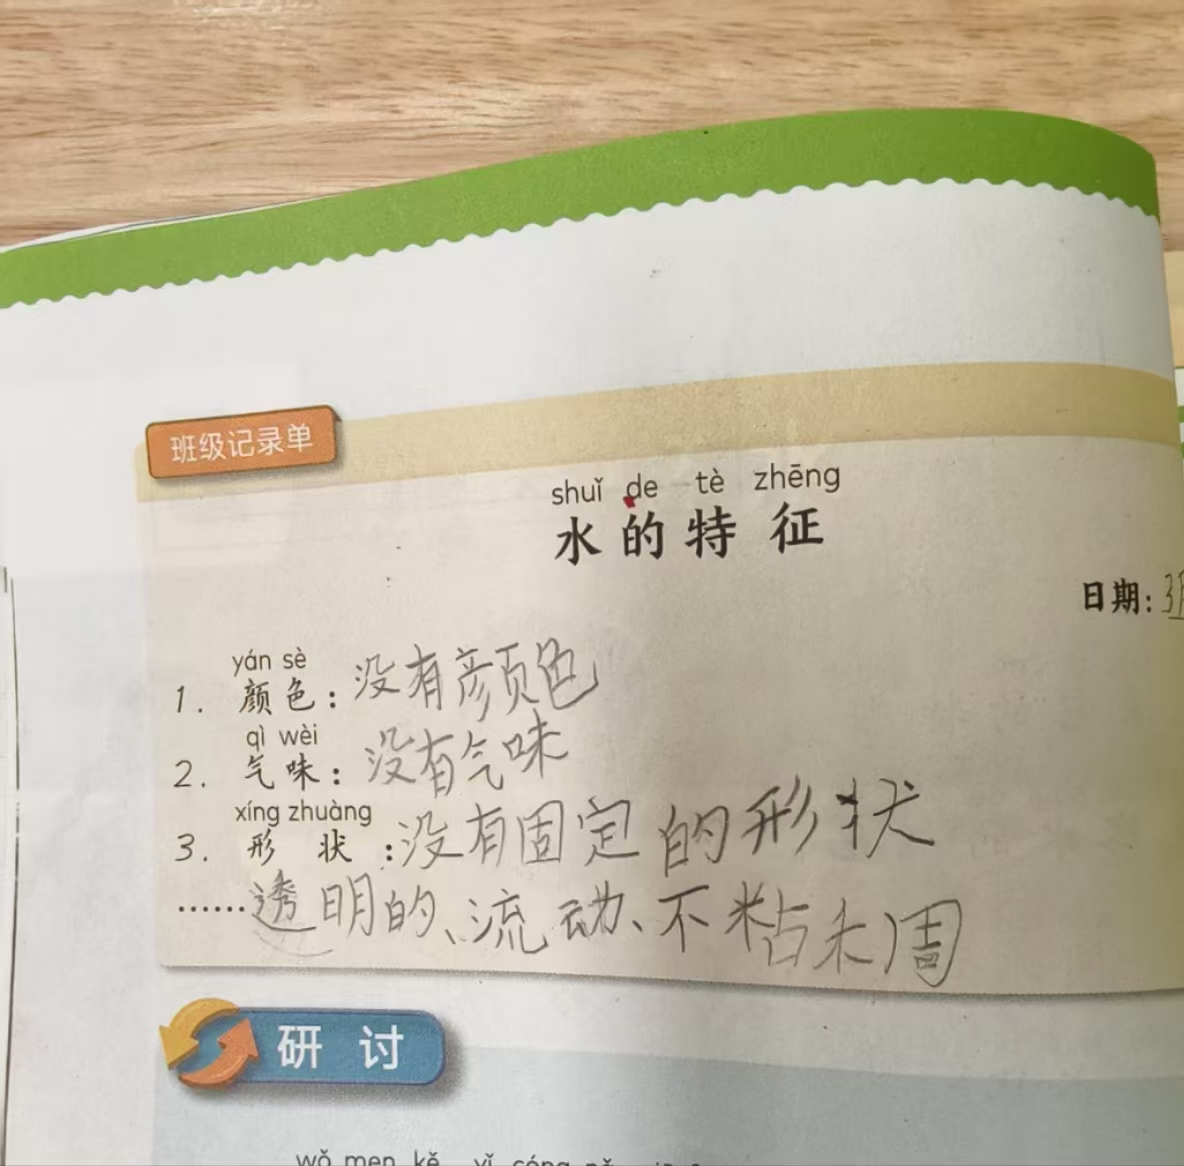 班级记录单
shuǐ de tè zhēng
水的特征
日期:3月
yán sè
1. 颜色:没有颜色
qì wèi
2. 气味:没有气味
xíng zhuàng
3. 形状:没有固定的形状
……透明的、流动、不粘禾周
研讨
wǒ men kě yǐ cóng nǎ